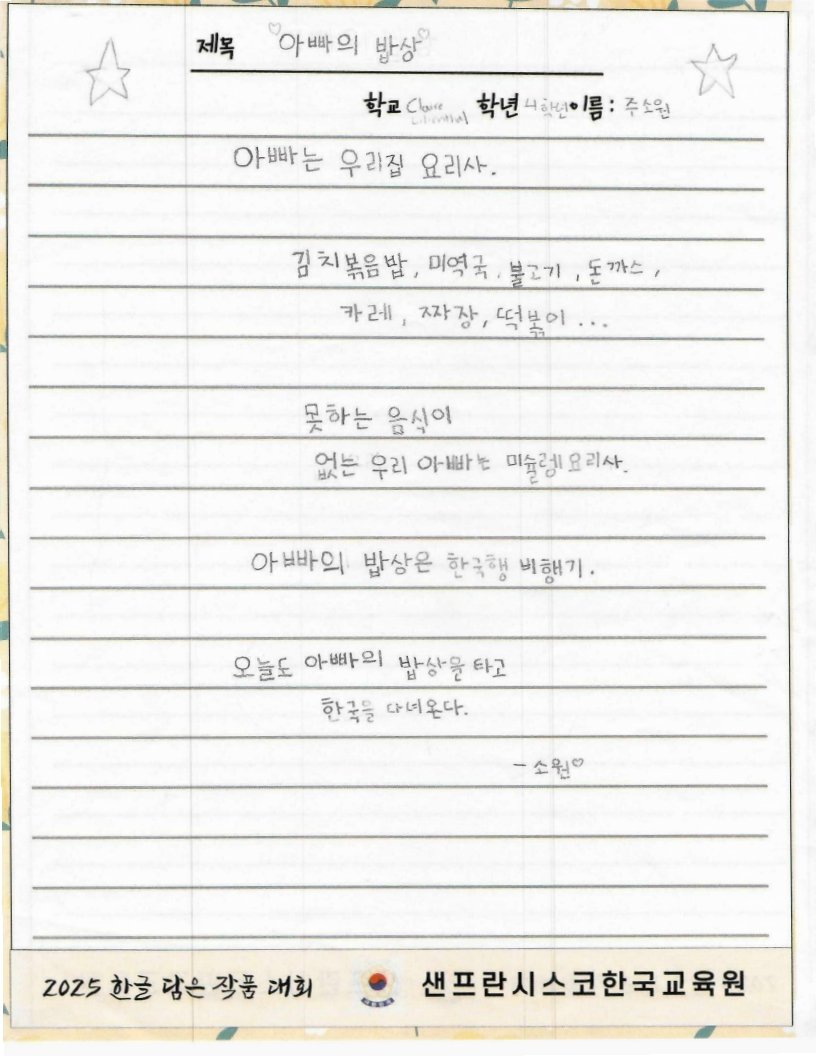 제목 ♡아빠의 밥상♡
학교 Claire Lilienthal 학년 4학년 이름: 주소원
아빠는 우리집 요리사.
김치볶음밥, 미역국, 불고기, 돈까스,
카레, 짜장, 떡볶이...
못하는 음식이
없는 우리 아빠는 미슐렝요리사.
아빠의 밥상은 한국행 비행기.
오늘도 아빠의 밥상을 타고
한국을 다녀온다.
- 소원♡
2025 한글 담은 작품 대회 샌프란시스코한국교육원